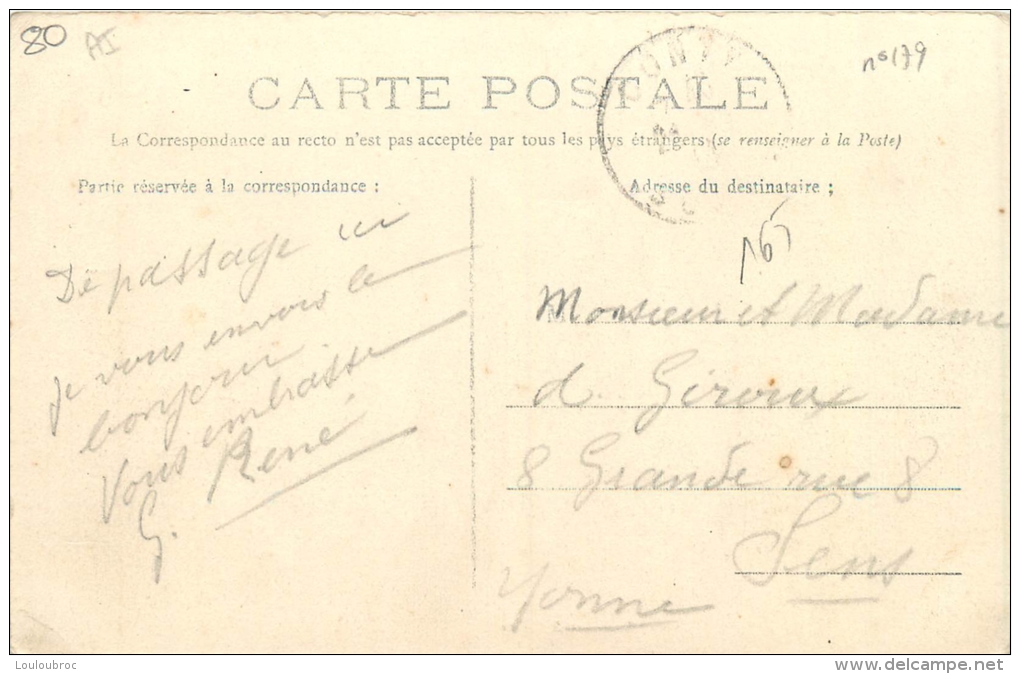 80
AI
n° 179
CARTE POSTALE
La Correspondance au recto n'est pas acceptée par tous les pays étrangers (se renseigner à la Poste)
Partie réservée à la correspondance :
De passage ici
je vous envois le
bonjour
Vous embrasse
G. René
Adresse du destinataire ;
165
Monsieur et Madame
d. Giroux
8 Grande rue 8
Sens
Yonne
Louloubroc
www.delcampe.net